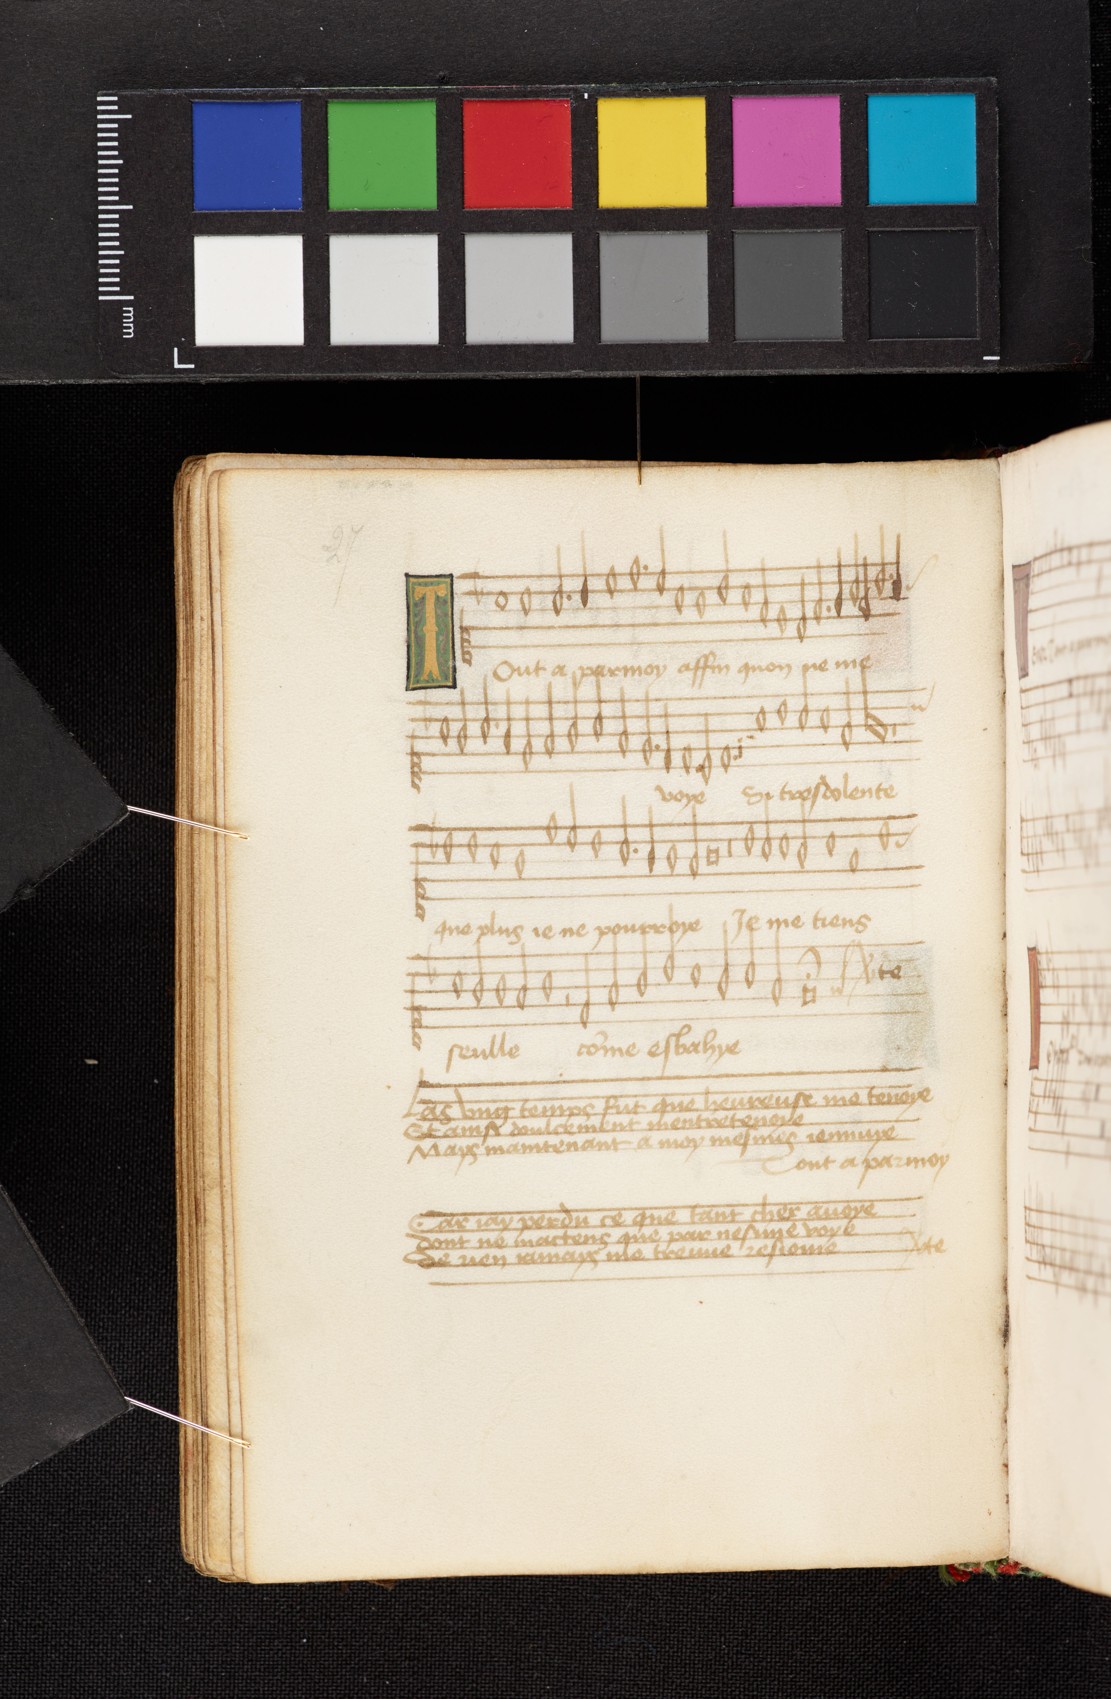 mm
Tout a parmoy affin quon ne me
voye Si tresdolente
que plus ie ne pourroye Je me tiens
Vte
seulle cõme esbahye
Las long temps fut que heureuse me tenoye
Et ainsy doulcement mentretenoye
Mays maintenant a moy mesmes iennuye
Tout a parmoy
Car iay perdu ce que tant cher avoye
dont ne mactens que par nesune voye
De rien iamays me treuve resiouie
Vte